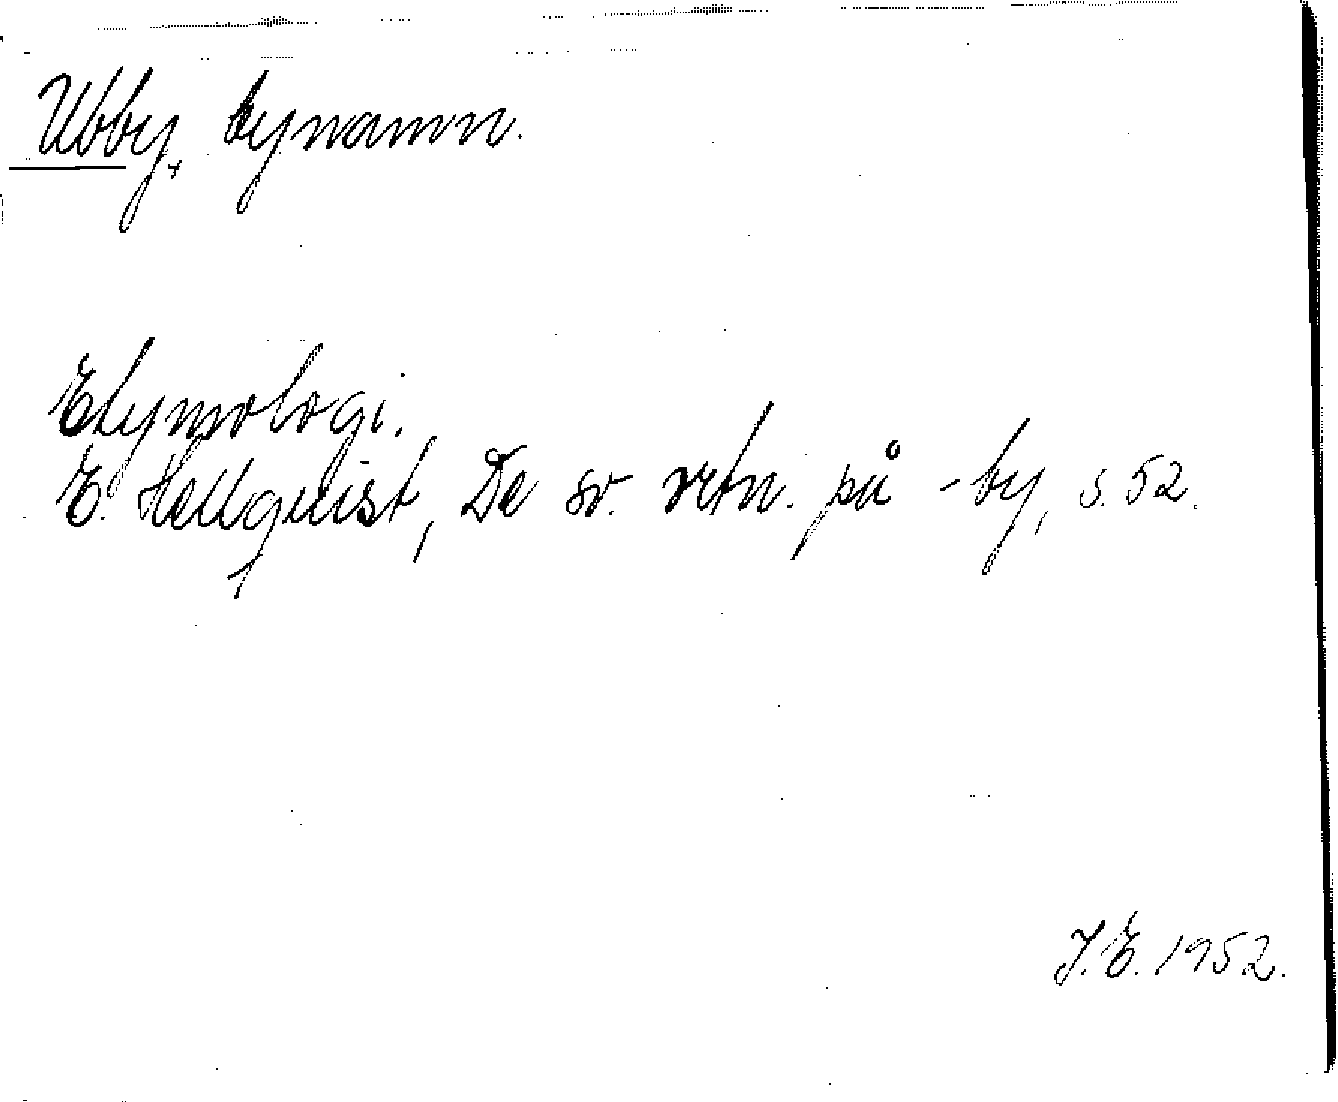 Ubby, bynamn.
Etymologi.
E. Hellquist, De sv. ortn. på -by, s. 52.
J.E. 1952.